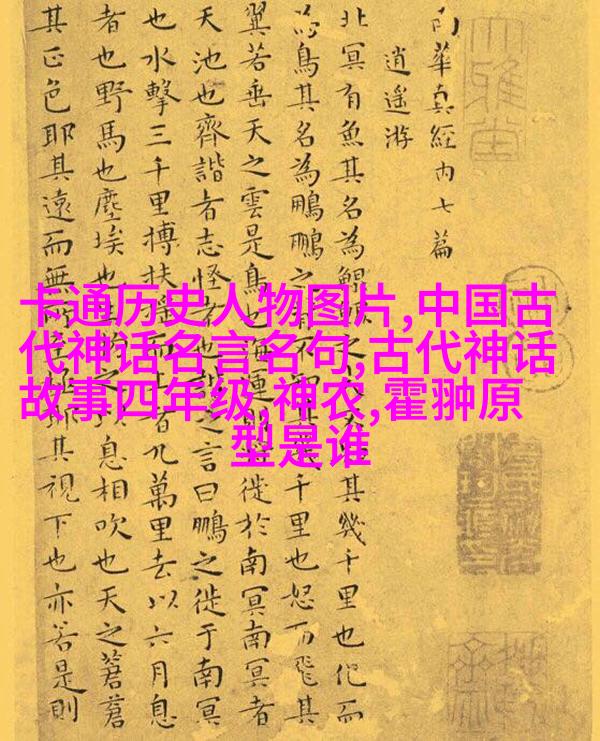 卡通历史人物图片,中国古
代神话名言名句,古代神话
故事四年级,神农,霍翀原
型是谁
南華真經内七篇
逍遥游
北冥有魚其名為鯤鯤之其幾千里也化而
為鳥其名為鵬鵬之背不千里也怒而飛其
翼若垂天之雲是鳥也海運則徙於南冥南冥者
天池也齊諧者志怪者也諧之言曰鵬之徙于南冥
也水擊三千里搏扶摇而者九萬里去以六月息
者也野馬也塵埃也之以息相吹也天之蒼蒼
其正色耶其遠而無所至極耶其視下也亦若是則